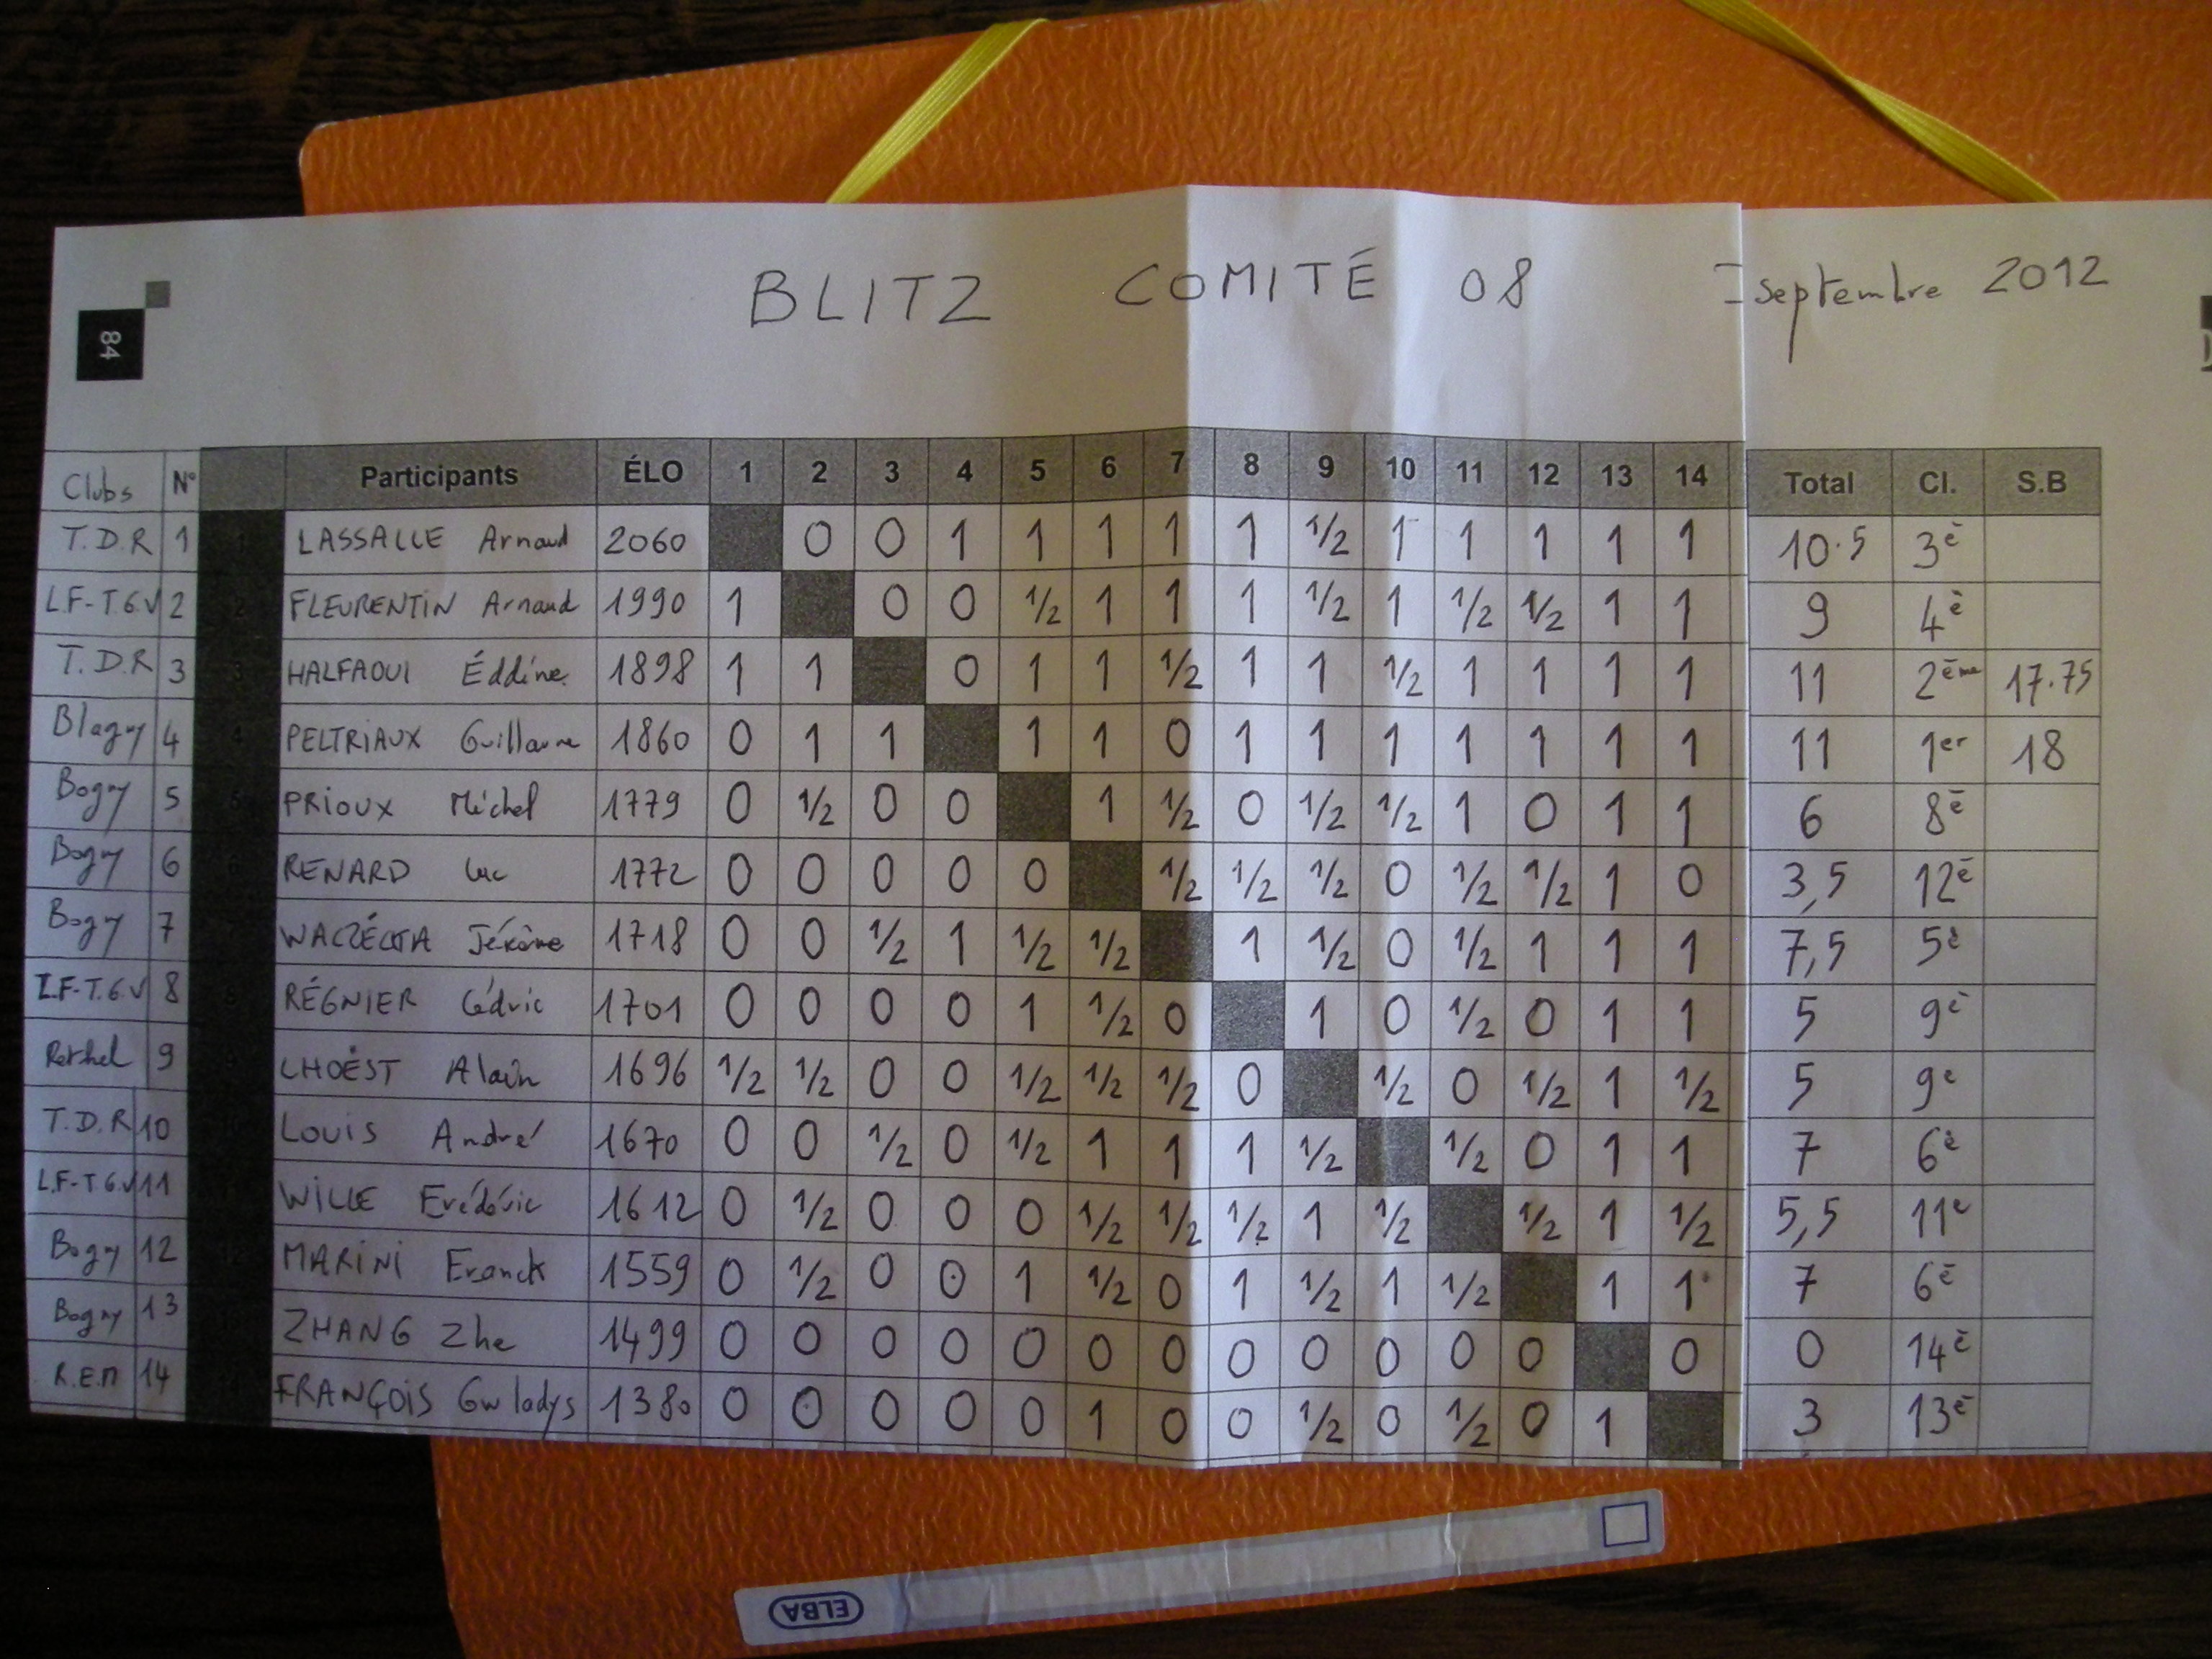 BLITZ COMITÉ 08 septembre 2012
84
Clubs N° Participants ÉLO 1 2 3 4 5 6 7 8 9 10 11 12 13 14 Total Cl. S.B
T.D.R 1 LASSALLE Arnaud 2060 0 0 1 1 1 1 1 1/2 1 1 1 1 1 10.5 3è
L.F-T.G.V 2 FLEURENTIN Arnaud 1990 1 0 0 1/2 1 1 1 1/2 1 1/2 1/2 1 1 9 4è
T.D.R 3 HALFAOUI Éddine 1898 1 1 0 1 1 1/2 1 1 1/2 1 1 1 1 11 2ème 17.75
Blagny 4 PELTRIAUX Guillaume 1860 0 1 1 1 1 0 1 1 1 1 1 1 1 11 1er 18
Bogny 5 PRIOUX Michel 1779 0 1/2 0 0 1 1/2 0 1/2 1/2 1 0 1 1 6 8è
Bogny 6 RENARD Luc 1772 0 0 0 0 0 1/2 1/2 1/2 0 1/2 1/2 1 0 3,5 12è
Bogny 7 Jérôme 1718 0 0 1/2 1 1/2 1/2 1 1/2 0 1/2 1 1 1 7,5 5è
L.F-T.G.V 8 RÉGNIER Cédric 1701 0 0 0 0 1 1/2 0 1 0 1/2 0 1 1 5 9è
Rethel 9 LHOËST Alain 1696 1/2 1/2 0 0 1/2 1/2 1/2 0 1/2 0 1/2 1 1/2 5 9è
T.D.R 10 LOUIS André 1670 0 0 1/2 0 1/2 1 1 1 1/2 1/2 0 1 1 7 6è
L.F-T.G.V 11 WILLE Frédéric 1612 0 1/2 0 0 0 1/2 1/2 1/2 1 1/2 1/2 1 1/2 5,5 11è
Bogny 12 MARINI Franck 1559 0 1/2 0 0 1 1/2 0 1 1/2 1 1/2 1 1 7 6è
Bogny 13 ZHANG Zhe 1499 0 0 0 0 0 0 0 0 0 0 0 0 0 0 14è
R.E.M 14 FRANÇOIS Gwladys 1380 0 0 0 0 0 1 0 0 1/2 0 1/2 0 1 3 13è
ELBA